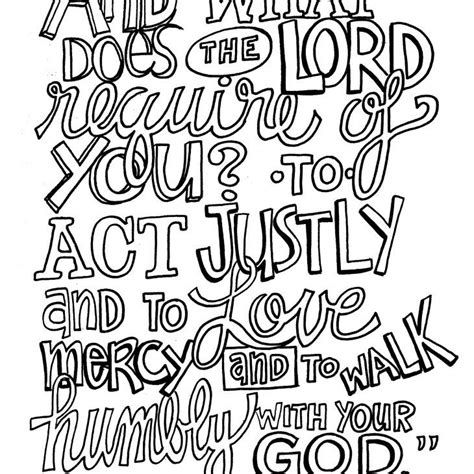 AND WHAT
DOES THE LORD
require of
YOU? •TO•
ACT JUSTLY
and TO Love
MERCY and TO WALK
humbly WITH YOUR
GOD."